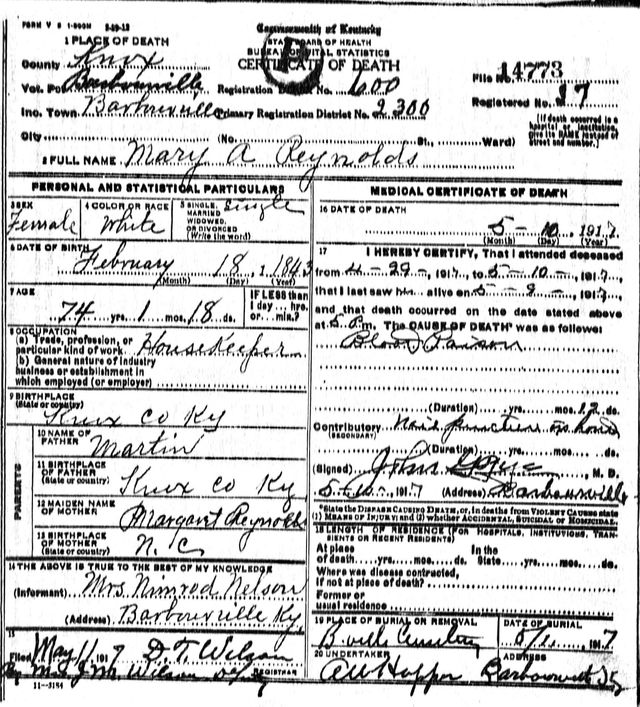 FORM V S 1-500M 5-19-12
Commonwealth of Kentucky
STATE BOARD OF HEALTH
BUREAU OF VITAL STATISTICS
CERTIFICATE OF DEATH
1 PLACE OF DEATH
County Knox
Vot. Po Barbourville
Inc. Town Barbourville
City (No. St., Ward)
Registration District No. 600
Primary Registration District No. 2300
File No. 14773
Registered No. 17
[If death occurred in a hospital or institution, give its NAME instead of street and number.]
2 FULL NAME Mary A Reynolds
PERSONAL AND STATISTICAL PARTICULARS
3 SEX Female
4 COLOR OR RACE White
5 SINGLE, MARRIED WIDOWED, OR DIVORCED (Write the word) Single
6 DATE OF BIRTH February 18, 1843
(Month) (Day) (Year)
7 AGE 74 yrs. 1 mos. 18 ds.
IF LESS than 1 day... hrs. or... min.?
8 OCCUPATION
(a) Trade, profession, or particular kind of work Housekeeper
(b) General nature of industry business or establishment in which employed (or employer)
9 BIRTHPLACE (State or country) Knox Co Ky
PARENTS
10 NAME OF FATHER Martin
11 BIRTHPLACE OF FATHER (State or country) Knox Co Ky
12 MAIDEN NAME OF MOTHER Margaret Reynolds
13 BIRTHPLACE OF MOTHER (State or country) N. C.
14 THE ABOVE IS TRUE TO THE BEST OF MY KNOWLEDGE
(Informant) Mrs. Nimrod Nelson
(Address) Barbourville Ky.
15
Filed May 11 1917 D. T. Wilson
By Mrs J. M. Wilson Dpty REGISTRAR
11-3184
MEDICAL CERTIFICATE OF DEATH
16 DATE OF DEATH
5 - 10, 1917
(Month) (Day) (Year)
17 I HEREBY CERTIFY, That I attended deceased
from 4-29-, 1917, to 5-10-, 1917,
that I last saw h alive on 5-9-, 1917,
and that death occurred on the date stated above
at 5 P.m. The CAUSE OF DEATH* was as follows:
Blood Poison
(Duration) yrs. mos. 12 ds.
Contributory Nail puncture
(SECONDARY)
(Duration) yrs. mos. ds.
(Signed) John, M. D.
5-10-, 1917 (Address) Barbourville
*State the DISEASE CAUSING DEATH, or, in deaths from VIOLENT CAUSES state (1) MEANS OF INJURY; and (2) whether ACCIDENTAL, SUICIDAL OR HOMICIDAL.
18 LENGTH OF RESIDENCE (FOR HOSPITALS, INSTITUTIONS, TRANSIENTS OR RECENT RESIDENTS)
At place of death yrs. mos. ds. In the State yrs. mos. ds.
Where was disease contracted, if not at place of death?
Former or usual residence
19 PLACE OF BURIAL OR REMOVAL B.ville Cemetery
DATE OF BURIAL 5/11, 1917
20 UNDERTAKER AW Hopper
ADDRESS Barbourville Ky